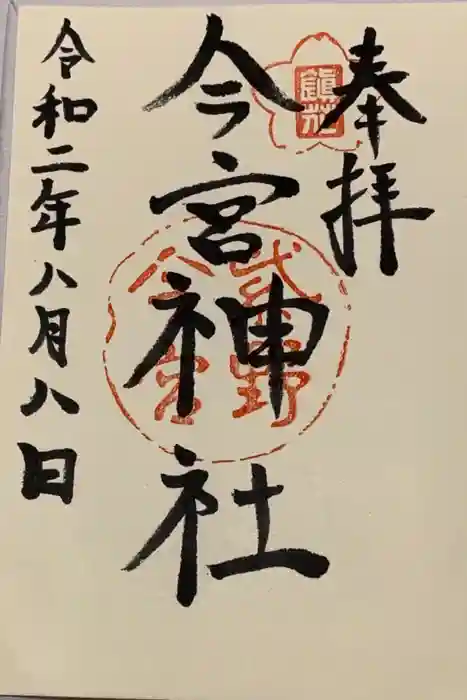 奉拝
鎮花
今宮神社
紫野
今宮
令和二年八月八日